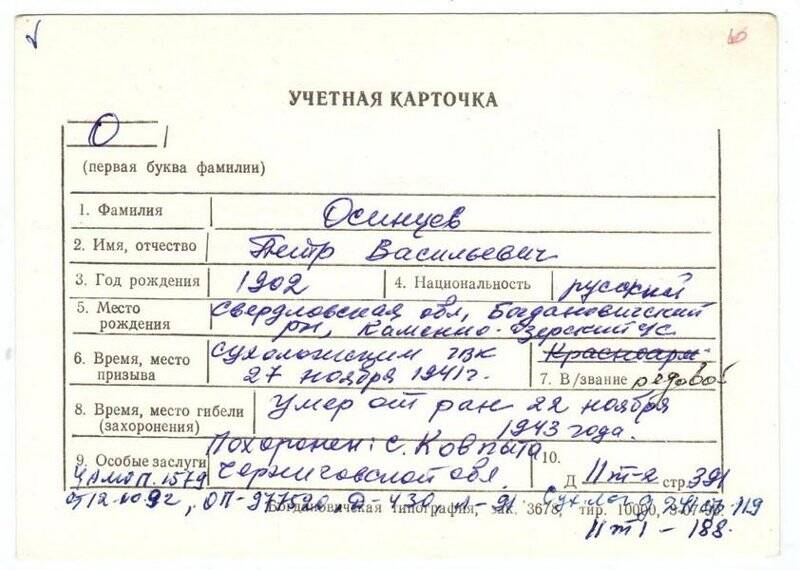 УЧЕТНАЯ КАРТОЧКА
О
(первая буква фамилии)
1. Фамилия Осинцев
2. Имя, отчество Петр Васильевич
3. Год рождения 1902 4. Национальность русский
5. Место рождения Свердловская обл, Богдановичский
рн, Каменно-Озерский с
6. Время, место призыва Сухоложским гвк Красноарм
27 ноября 1941г. 7. В/звание редовой
8. Время, место гибели (захоронения) Умер от ран 22 ноября
1943 года.
Похоронен: с. Ковпыта
9. Особые заслуги Черниговской обл. 10.
Д II т-2 стр 391
ЦАМО П. 1579
от 12.10.92, ОП-977520, Д-430, Л-91 Сух.лог д 241 стр 119
Богдановичская типография, зак. 3678, тир. 10000,
II т 1 - 188.